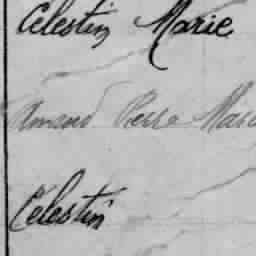 Celestin Marie
Amand Pierre Marie
Célestin